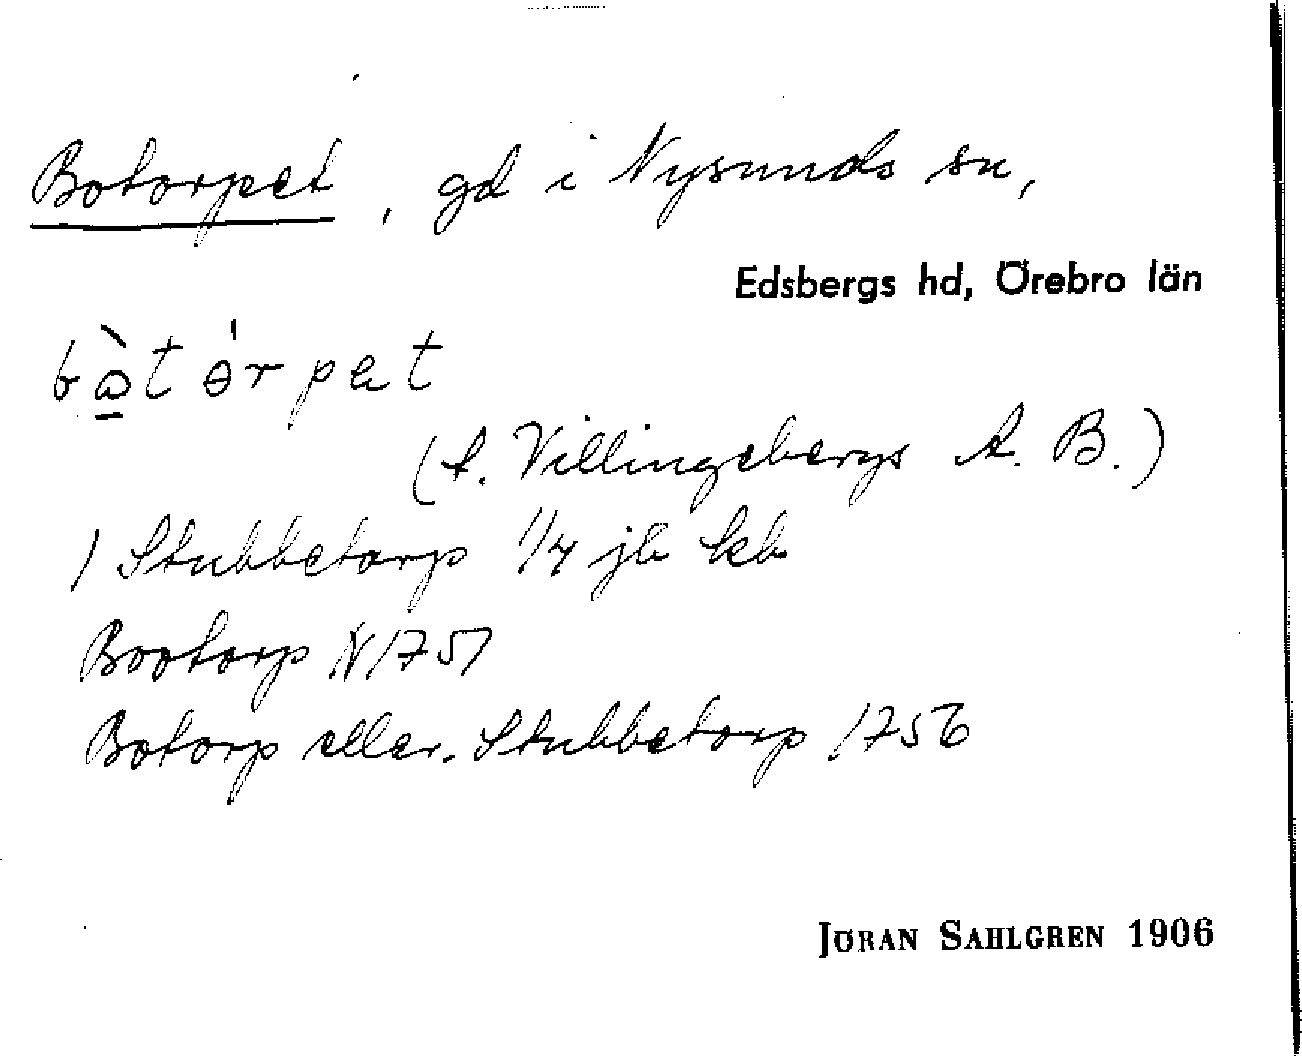 Botorpet, gd i Nysunds sn,
Edsbergs hd, Örebro län
(t. Villingsbergs A. B.)
1 Stubbetorp 1/4 jb kb
Bootorp N 1751
Botorp eller. Stubbetorp 1756
JÖRAN SAHLGREN 1906